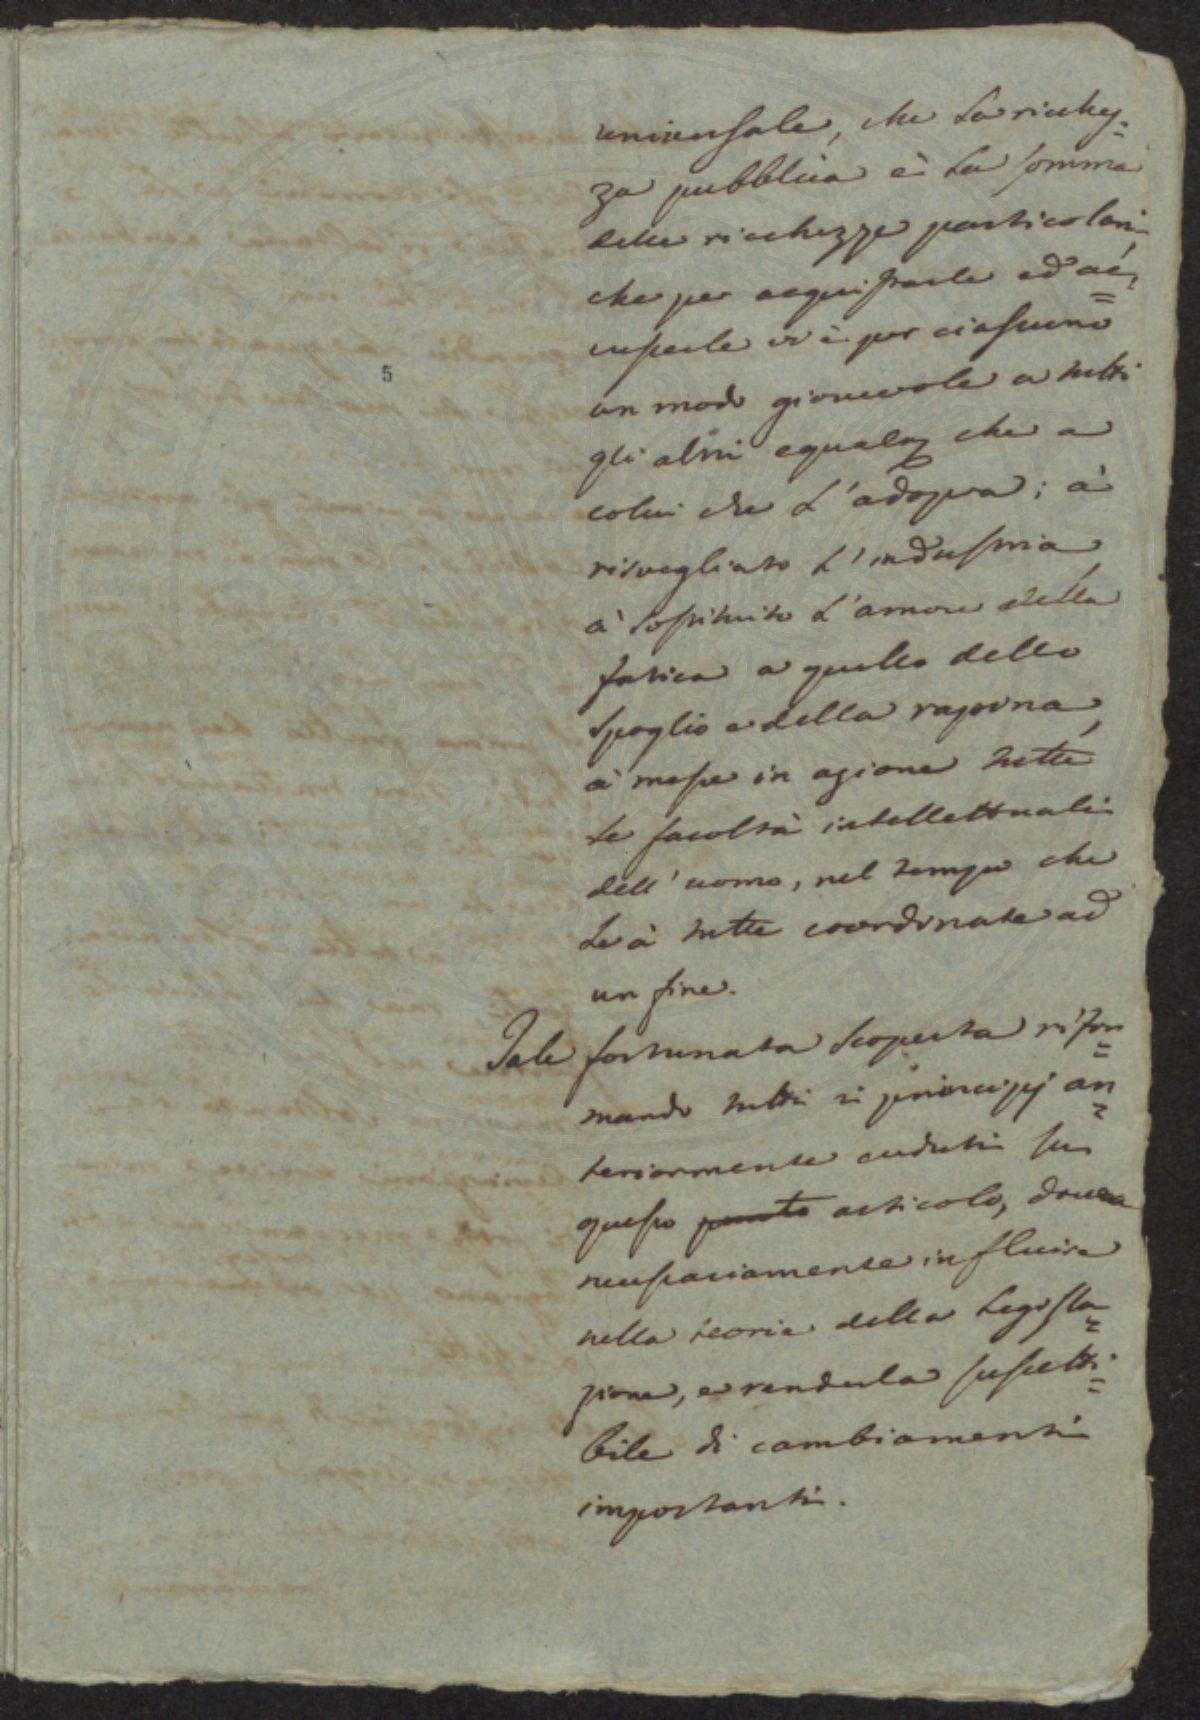 universale, che la ricchez=
za pubblica è la somma
delle ricchezze particolari,
che per acquistarle ed ac=
cuserle vi è per ciascuno
un modo giovevole a tutti
5
gli altri equalm che a
colui che l'adopra; à
risvegliato l'industria,
à sostituito l'amore della
fatica a quello dello
spoglio e della rapina,
à messe in azione tutte
le facoltà intellettuali
dell'uomo, nel tempo che
le à tutte coordinate ad
un fine.
Tale fortunata scoperta rifor=
mando tutti i principj an=
teriormente creduti su
questo punto articolo, doveva
necessariamente influire
nella teoria della legisla=
zione, e renderla suscetti=
bile di cambiamenti
importanti.